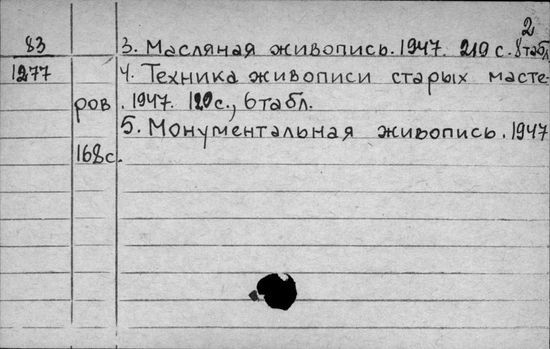 2
83
3. Масляная живопись. 1947. 219 с. 8 табл
1277
4. Техника живописи старых масте-
ров. 1947. 120 с., 6 табл.
5. Монументальная живопись. 1947
168 с.